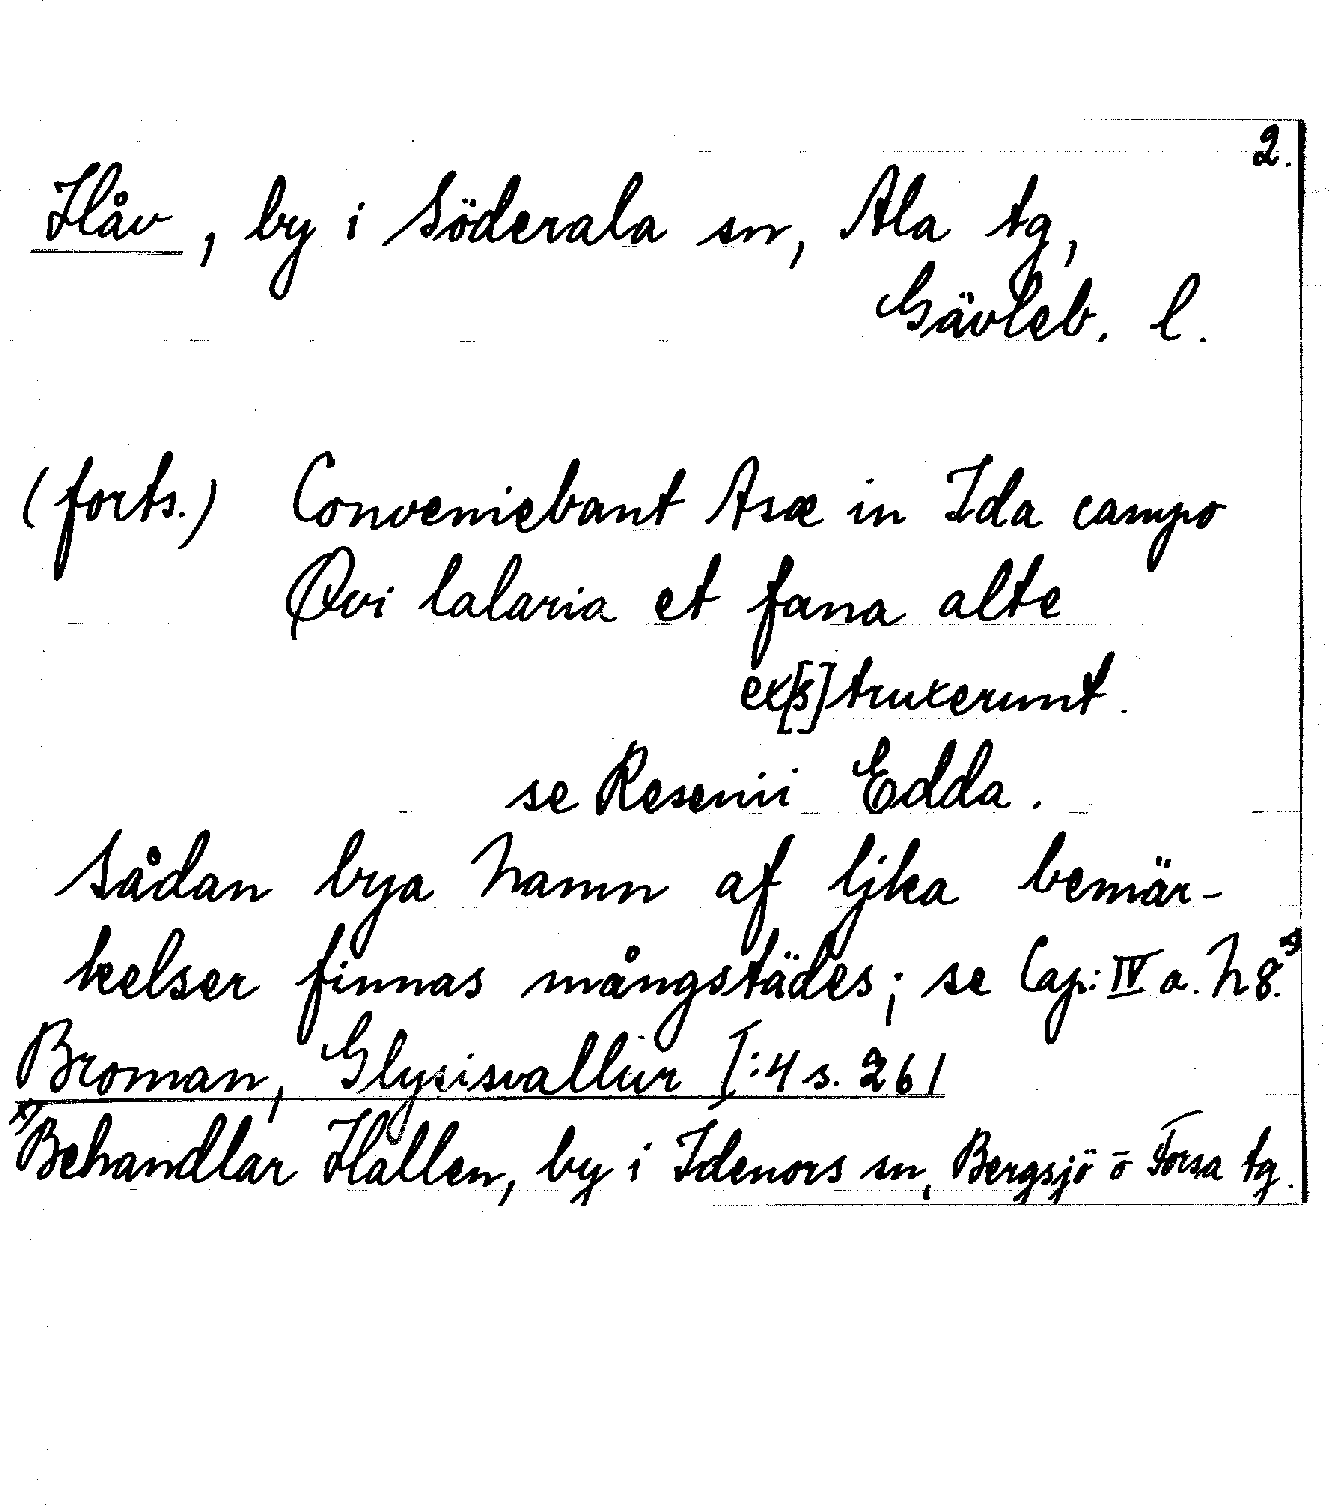 2.
Håv, by i Söderala sn, Ala tg,
Gävleb. l.
(forts.) Conveniebant Asæ in Ida campo
Qvi lalaria et fana alte
ex[s]truxerunt.
se Resenii Edda.
Sådan bya Namn af ljka bemär-
kelser finnas mångstädes; se Cap: IV a. N 8. x)
Broman, Glysisvallur I:4 s. 261
x) Behandlar Hallen, by i Idenors sn, Bergsjö o Forsa tg.